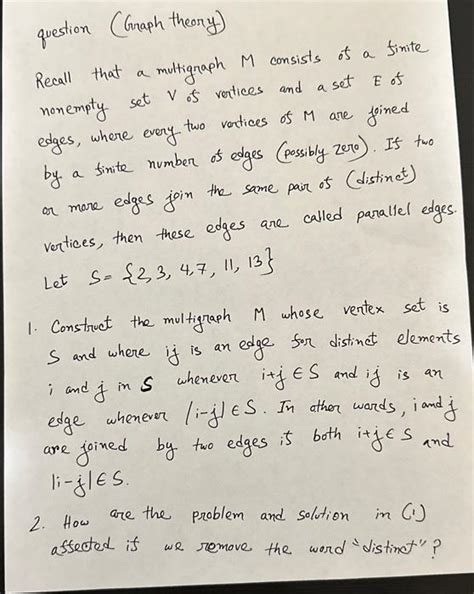 question (Graph theory)
Recall that a multigraph M consists of a finite
nonempty set V of vertices and a set E of
edges, where every two vertices of M are joined
by a finite number of edges (possibly zero). If two
or more edges join the same pair of (distinct)
vertices, then these edges are called parallel edges.
Let S = {2, 3, 4, 7, 11, 13}
1. Construct the multigraph M whose vertex set is
S and where ij is an edge for distinct elements
i and j in S whenever i+j ∈ S and ij is an
edge whenever |i-j| ∈ S. In other words, i and j
are joined by two edges if both i+j ∈ S and
|i-j| ∈ S.
2. How are the problem and solution in (1)
affected if we remove the word "distinct"?